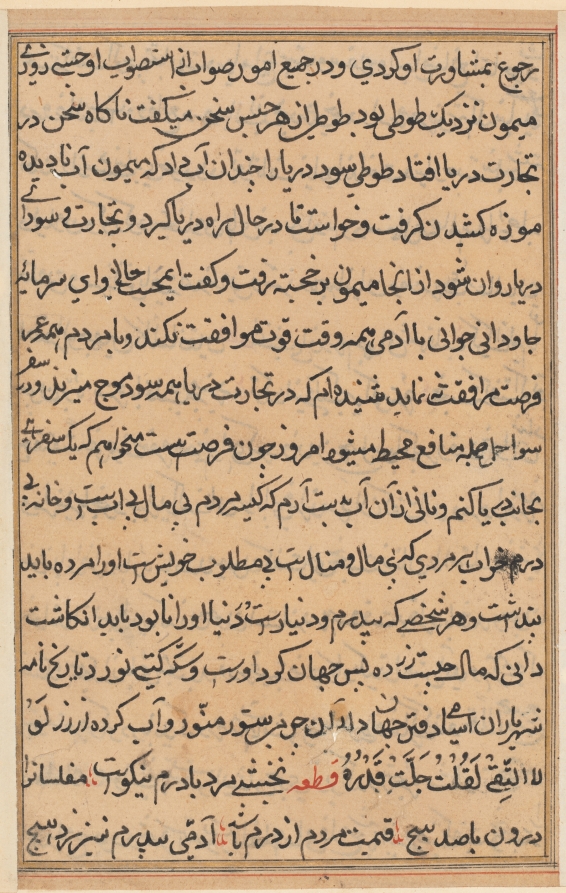 رجوع بمشاورت او کردی و در جمیع امور صواب از استصواب او جستی روزی
میمون نزدیک طوطی بود طوطی از هر جنس سخن میگفت ناکاه سخن در
تجارت دریا افتاد طوطی سود دریا را چندان آب داد که میمون آب نادیده
موزه کشیدن کرفت و خواست تا در حال راه دریا کیرد و بتجارت و سودای
دریا روان شود از انجا میمون بر خجسته رفت و کفت ای سرمایه
جاودانی جوانی با آدمی همه وقت قوت موافقت نکند و با مردم همه عمر
فرصت مرافقت ننماید شنیده ام که در تجارت دریا همه سود موج میزند و در سفر
سواحل جمله منافع محیط میشود امروز چون فرصت هست میخواهم که یک سفری
بجانب دریا کنم و نانی از آن آب بدست آرم که کیسه مردم بی مال بی اب است و خانه بی
درم خراب هر مردی که بی مال و منال است بی مطلوب خویش است او را مرده باید
پنداشت و هر شخصی که بی درم و دنیا است در دنیا او را نابود باید انکاشت
دانی که مال چیست زر ده پس جهان کرد اورست و سکه کیتی نورد تاریخ نامه
شهریاران اسامی دفتر جهان داران جوهریست ور منور و آب کرده از زر لو
لا التقی لقلت جلت قدرته قطعه نخشبی مرد با درم نیکوست مفلسانرا
درون باصد هیچ قیمت مردم از درم باشد آدمی بی درم نیرزد هیچ